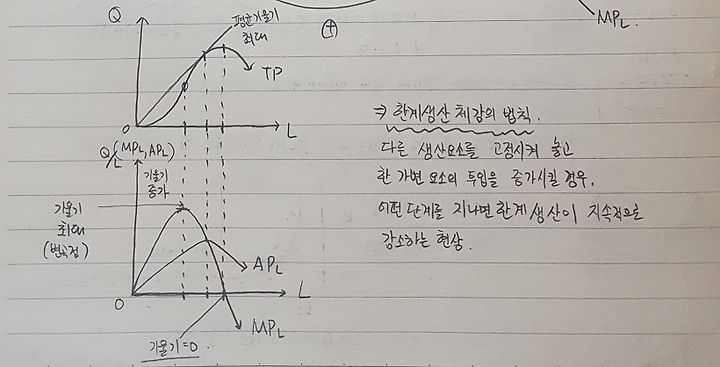 MPL.
Q
평균기울기
최대
TP
O
L
⇒ 한계생산 체감의 법칙.
다른 생산요소를 고정시켜 놓고
한 가변 요소의 투입을 증가시킬 경우,
어떤 단계를 지나면 한계생산이 지속적으로
감소하는 현상.
Q/L (MPL, APL)
기울기
증가
기울기
최대
(변곡점)
APL
O
L
MPL
기울기=0